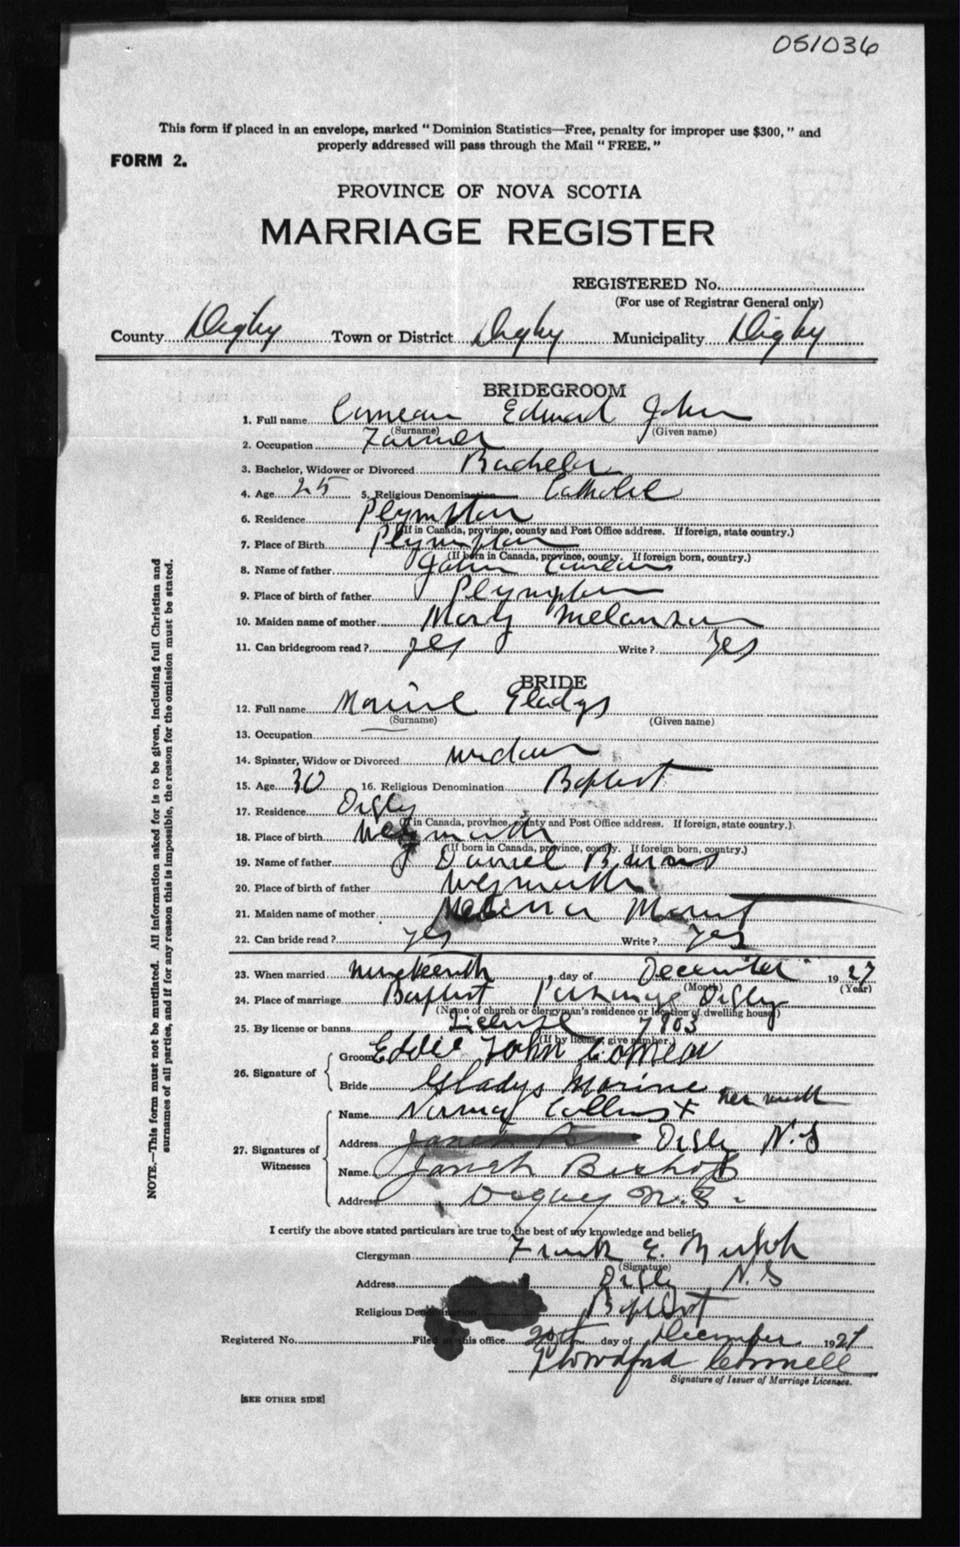 051036
This form if placed in an envelope, marked "Dominion Statistics—Free, penalty for improper use $300," and
properly addressed will pass through the Mail "FREE."
FORM 2.
PROVINCE OF NOVA SCOTIA
MARRIAGE REGISTER
REGISTERED No.
(For use of Registrar General only)
County Digby Town or District Digby Municipality Digby
BRIDEGROOM
1. Full name Comeau Edward John
(Surname) (Given name)
2. Occupation Farmer
3. Bachelor, Widower or Divorced Bachelor
4. Age 25 5. Religious Denomination Catholic
6. Residence Plympton
(If in Canada, province, county and Post Office address. If foreign, state country.)
7. Place of Birth Plympton
(If born in Canada, province, county. If foreign born, country.)
8. Name of father John Comeau
9. Place of birth of father Plympton
10. Maiden name of mother Mary Melanson
11. Can bridegroom read? yes Write? Yes
BRIDE
12. Full name Gladys
(Surname) (Given name)
13. Occupation
14. Spinster, Widow or Divorced widow
15. Age 30 16. Religious Denomination Baptist
17. Residence Digby
(If in Canada, province, county and Post Office address. If foreign, state country.)
18. Place of birth Weymouth
(If born in Canada, province, county. If foreign born, country.)
19. Name of father Daniel
20. Place of birth of father Weymouth
21. Maiden name of mother
22. Can bride read? yes Write? yes
23. When married nineteenth day of December 1927
(Month) (Year)
24. Place of marriage Baptist Parsonage Digby
(Name of church or clergyman's residence or location of dwelling house)
25. By license or banns License 7803
(If by license, give number.)
26. Signature of
Groom Eddie John Comeau
Bride Gladys Marine
27. Signatures of Witnesses
Name Norma Collins +
Address Digby N.S
Name Bishop
Address N.S.
I certify the above stated particulars are true to the best of my knowledge and belief,
Clergyman Frank E. Bishop
(Signature)
Address Digby N.S
Religious Denomination Baptist
Registered No. Filed at this office 20th day of December 1927
Connell
Signature of Issuer of Marriage Licenses.
[SEE OTHER SIDE]
NOTE.—This form must not be mutilated. All information asked for is to be given, including full Christian and
surnames of all parties, and if for any reason this is impossible, the reason for the omission must be stated.